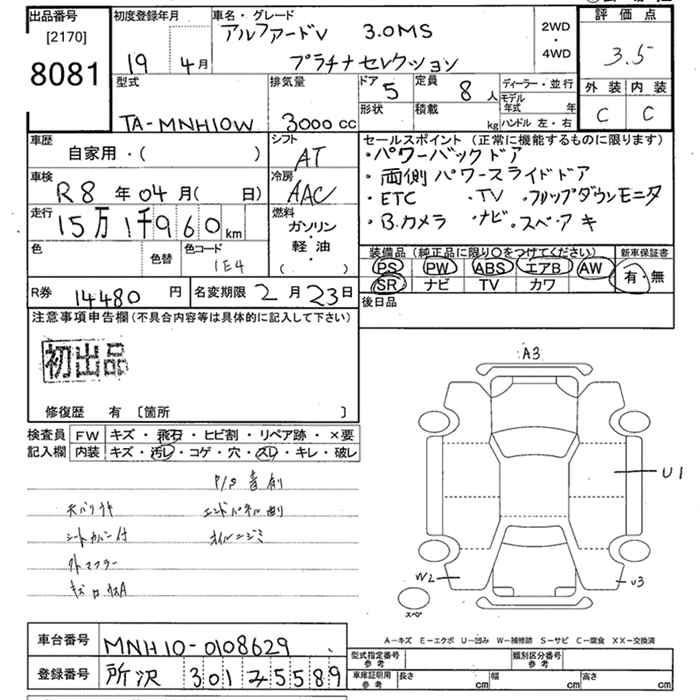 出品番号
[2170]
8081
初度登録年月
19 4月
車名・グレード
アルファードV 3.0MS
プラチナセレクション
2WD
・
4WD
評価点
3.5
外装 内装
C C
型式
TA-MNH10W
排気量
3000cc
ドア 5
形状
定員 8人
積載 kg
ディーラー・並行
モデル年式 年
ハンドル 左・右
車歴
自家用・( )
シフト
AT
車検
R8年04月( 日)
冷房
AAC
走行
15万1千960km
燃料
ガソリン
・
軽油
・
( )
色
色替
色コード
1E4
R券 14480円
名変期限 2月23日
セールスポイント (正常に機能するものに限ります)
・パワーバックドア
・両側パワースライドドア
・ETC ・TV ・フリップダウンモニタ
・B.カメラ ・ナビ ・スペアキ
装備品 (純正品に限り○をつけてください)
PS PW ABS エアB AW
SR ナビ TV カワ
新車保証書
有・無
後日品
注意事項申告欄 (不具合内容等は具体的に記入して下さい)
初出品
修復歴 有 [箇所 ]
検査員記入欄
FW キズ・飛石・ヒビ割・リペア跡・×要
内装 キズ・汚レ・コゲ・穴・スレ・キレ・破レ
シートカバー付
外マフラー
A3
U1
W2
U3
スペア
A-キズ E-エクボ U-凹み W-補修跡 S-サビ C-腐食 XX-交換済
車台番号 MNH10-0108629
登録番号 所沢 301 み 5589
型式指定番号 参考
類別区分番号 参考
車庫証明用 参考
長さ cm
幅 cm
高さ cm